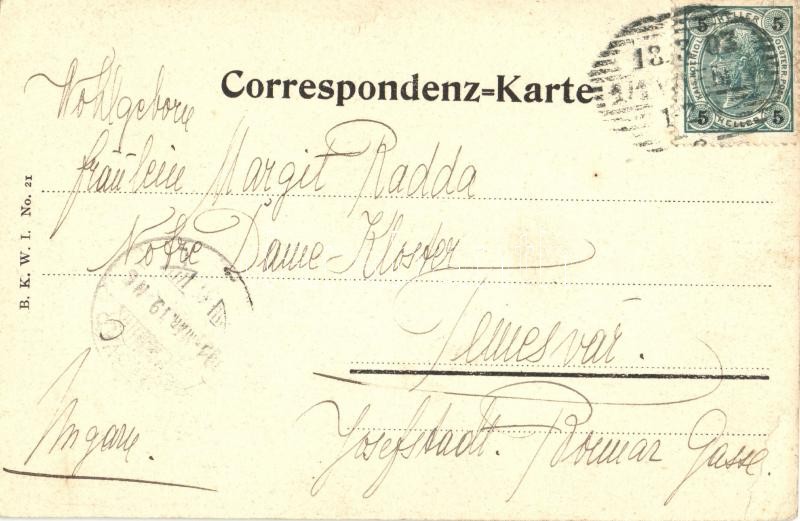 Correspondenz=Karte
5 HELLER 5
5 HELLER 5
18. 03
Wohlgeborn
Fräulein Margit Radda
Notre Dame-Kloster
Temesvár.
Josefstadt. Bonnar Gasse.
Ungarn.
B. K. W. I. No. 21